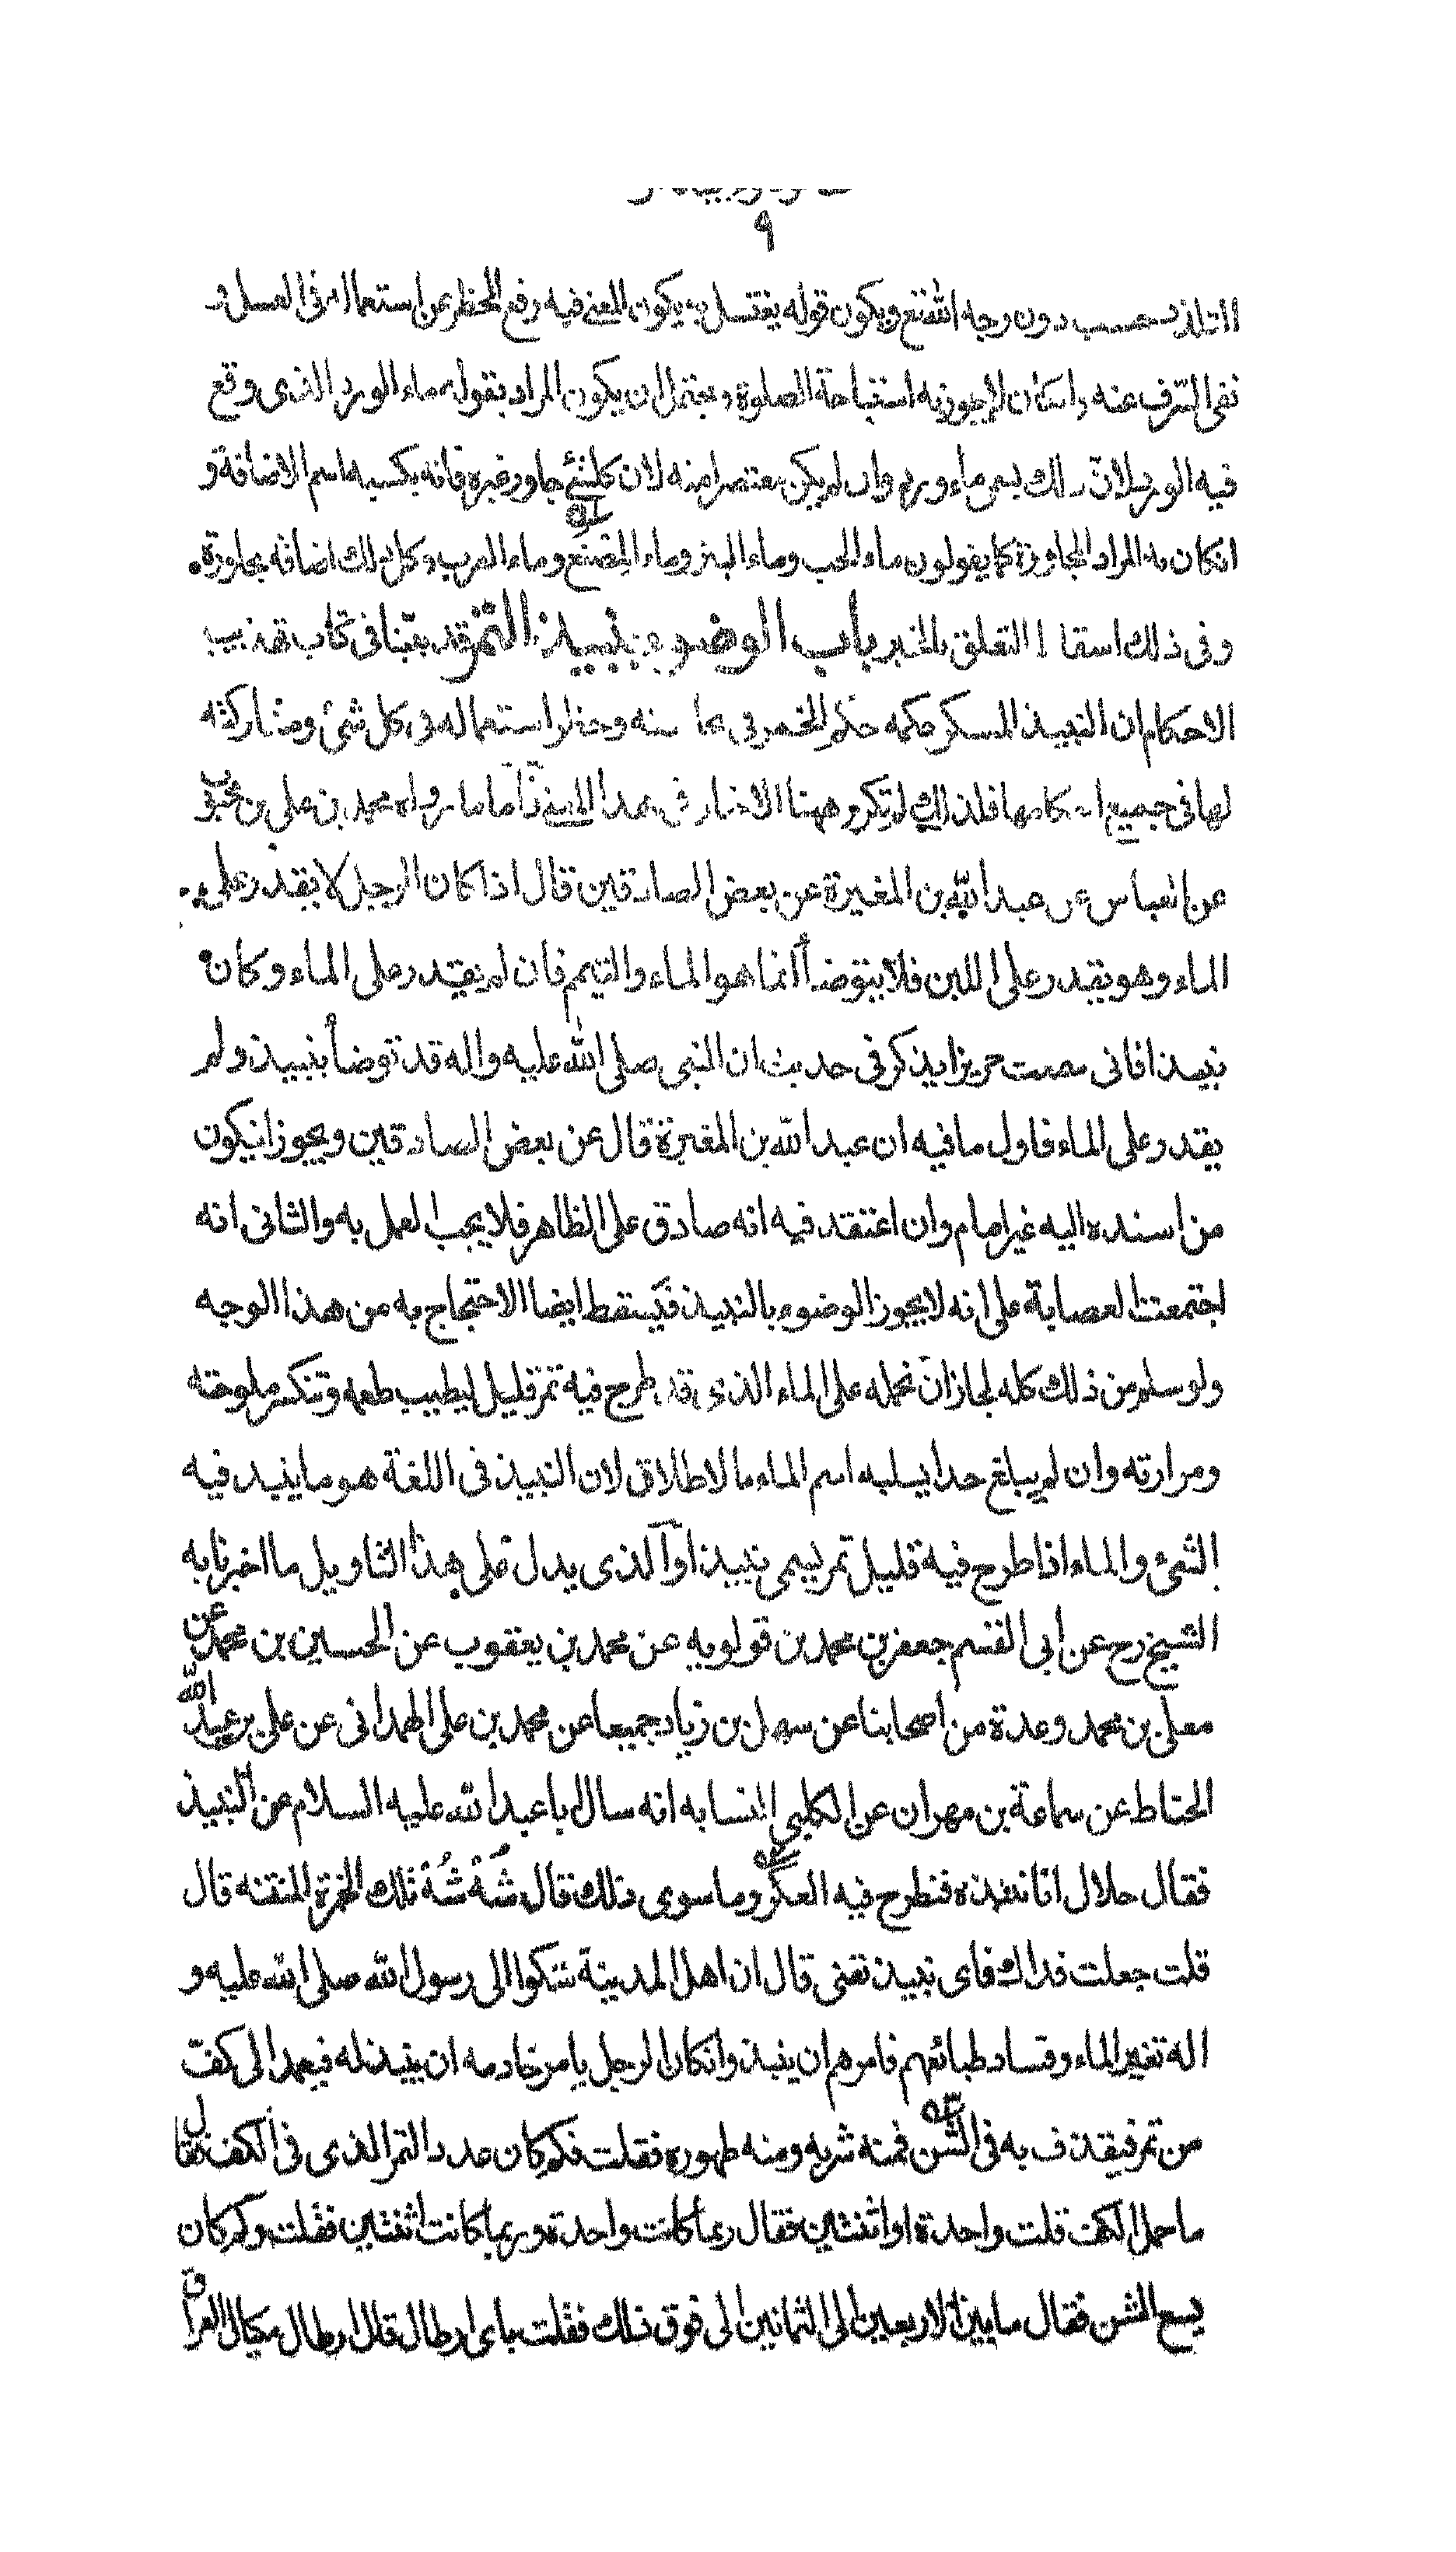 ٩
التلذذ حسب دون وجه الله تع ويكون قوله يغتسل به يكون المعنى فيه رفع الحظر عن استعماله فى الغسل و
نفى السرف عنه وان كان لايجوز به استباحة الصلوة ويحتمل ان يكون المراد بقوله ماء الورد الذى وقع
فيه الورد لان ذلك يسمى ماء ورد وان لم يكن معتصرا منه لان كل شئ جاور غيره فانه يكسبه اسم الاضافة و
انكان به المراد المجاورة كما يقولون ماء الحب وماء البئر وماء المصنع وماء القرب وكل ذلك اضافه مجاورة
وفى ذلك اسقاط التعلق بالخبر باب الوضوء بنبيذ التمر قد بينا فى كتاب تهذيب
الاحكام ان النبيذ المسكر حكمه حكم الخمر فى نجاسته وحظر استعماله فى كل شئ ومشاركته
لها فى جميع احكامها فلذلك لم نكرر ههنا الاخبار فى هذا المعنى فاما ما رواه محمد بن على بن محبوب
عن العباس عن عبد الله بن المغيرة عن بعض الصادقين قال اذا كان الرجل لا يقدر على
الماء وهو يقدر على اللبن فلا يتوضأ انما هو الماء والتيمم فان لم يقدر على الماء وكان
نبيذ افانى سمعت حريزا يذكر فى حديث ان النبى صلى الله عليه واله قد توضأ بنبيذ ولم
يقدر على الماء فاول ما فيه ان عبد الله بن المغيرة قال عن بعض الصادقين ويجوز انيكون
من اسنده اليه غير امام وان اعتقد فيه انه صادق على الظاهر فلا يجب العمل به والثانى انه
اجتمعت العصابة على انه لا يجوز الوضوء بالنبيذ فيسقط ايضا الاحتجاج به من هذا الوجه
ولو سلم من ذلك كله لجاز ان نحمله على الماء الذى قد طرح فيه تمر قليل ليطيب طعمه وتنكسر ملوحته
ومرارته وان لم يبلغ حدا يسلبه اسم الماء بالاطلاق لان النبيذ فى اللغة هو ما ينبذ فيه
الشئ والماء اذا طرح فيه قليل تمر يسمى نبيذا والذى يدل على هذا التاويل ما اخبرنا به
الشيخ رح عن ابى القسم جعفر بن محمد بن قولويه عن محمد بن يعقوب عن الحسين بن محمد عن
معلى بن محمد وعدة من اصحابنا عن سهل بن زياد جميعا عن محمد بن على الهمدانى عن على بن عبد الله
الحناط عن سماعة بن مهران عن الكلبى النسابه انه سال ابا عبد الله عليه السلام عن النبيذ
فقال حلال انا ننبذه فنطرح فيه العكر وما سوى ذلك فقال شه شه تلك الخمرة المنتنه قال
قلت جعلت فداك فاى نبيذ تعنى قال ان اهل المدينة شكوا الى رسول الله صلى الله عليه و
اله تغير الماء وفساد طبائعهم فامرهم ان ينبذوا فكان الرجل يامر خادمه ان ينبذ له فيعمد الى كف
من تمر فيقذف به فى الشن فمنه شربه ومنه طهوره فقلت فكم كان عدد التمر الذى فى الكف فقال
ما حمل الكف قلت واحدة او اثنتين فقال ربما كانت واحدة وربما كانت اثنتين فقلت وكم كان
يسع الشن فقال ما بين الاربعين الى الثمانين الى فوق ذلك فقلت باى ارطال قال ارطال مكيال العراق